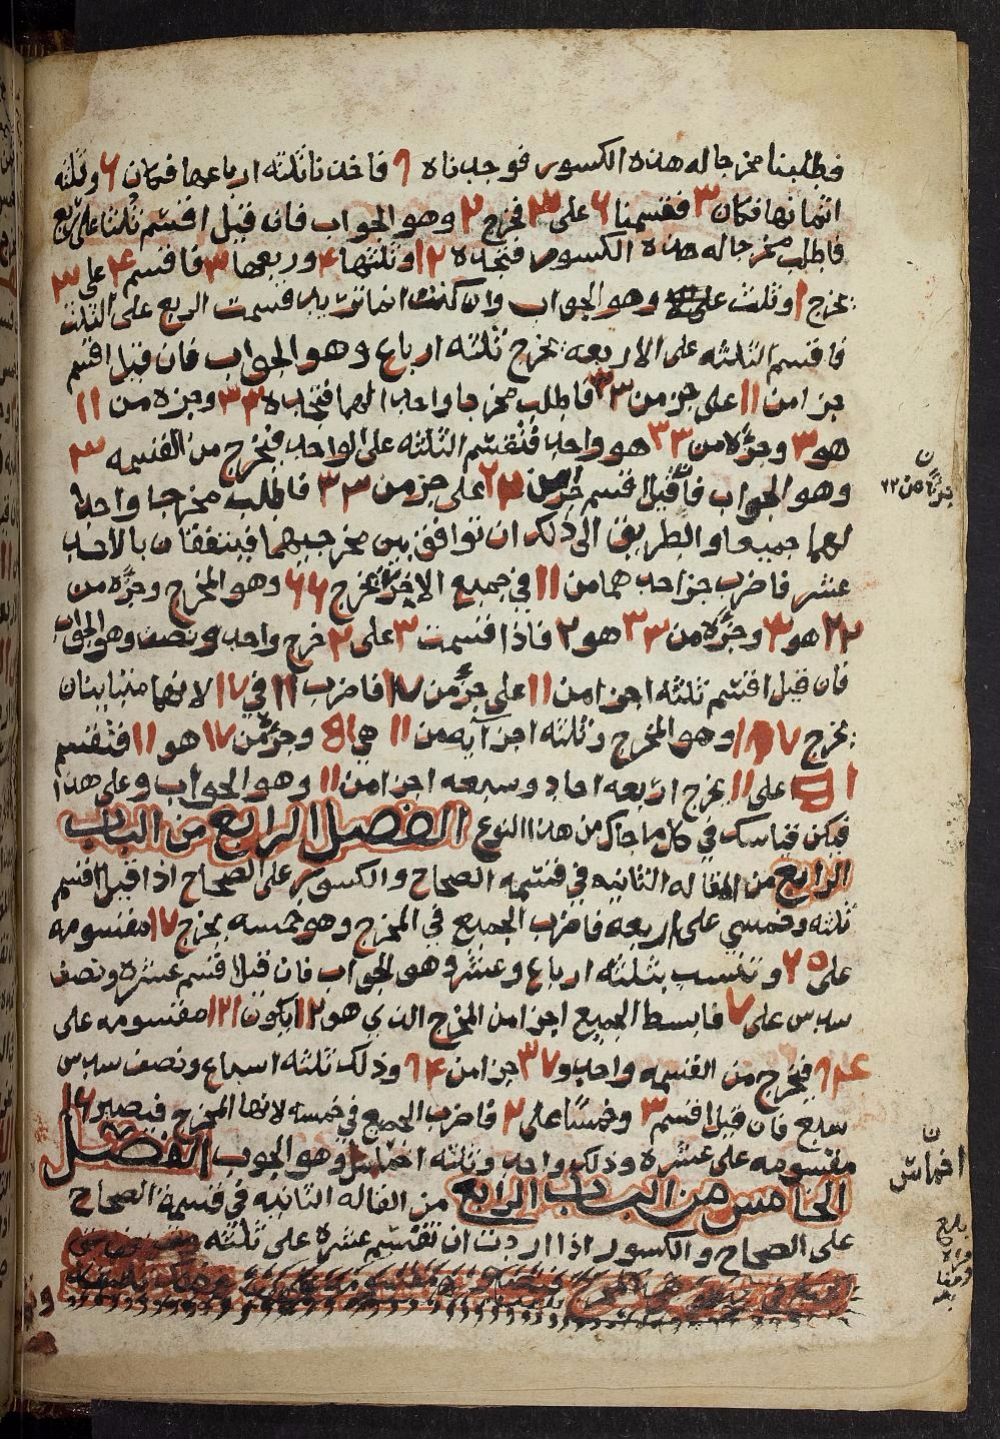 فطلبنا مخرجا له هذه الكسور فوجدناه ٩ فاخذنا ثلثه ارباعها فكان ٦ وثلثه
اثمانها فكان ٣ فقسمنا ٦ على ٣ فخرج ٢ وهو الجواب فانه قيل اقسم ثلثا على ربع
فاطلب مخرجا له هذه الكسور فتجده ١٢ وثلثها ٤ وربعها ٣ فاقسم ٤ على ٣
يخرج ١ وثلث وهو الجواب وان كنت انما تريد قسمت الربع على الثلث
فاقسم الثلثه على الاربعه يخرج ثلثه ارباع وهو الجواب فان قيل اقسم
جزا من ١١ على جز من ٣٣ فاطلب مخرجا واحدا لهما فتجده ٣٣ وجزه من ١١
هو ٣ وجزه من ٣٣ هو واحد فتقسم الثلثه على الواحد فيخرج من القسمه ٣
وهو الجواب فان قيل اقسم جز من ٢٢ على جز من ٣٣ فاطلب مخرجا واحدا
لهما جميعا والطريق الى ذلك ان توافق بين مخرجيهما فيتفقان بالاحد
عشر فاضرب جز احدهما من ١١ في جميع الاخر يخرج ٦٦ وهو المخرج وجزه من
٢٢ هو ٣ وجزه من ٣٣ هو ٢ فاذا قسمت ٣ على ٢ خرج واحد ونصف وهو الجواب
فان قيل اقسم ثلثه اجزا من ١١ على جز من ١٧ فاضرب ١١ في ١٧ لانهما متباينان
يخرج ١٨٧ وهو المخرج وثلثه اجزايه من ١١ هي ٥١ وجز من ١٧ هو ١١ فتقسم
٥١ على ١١ يخرج اربعه احاد وسبعه اجزا من ١١ وهو الجواب وعلى هذا
فيكن قياسك في كل ما جاك من هذا النوع الفصل الرابع من الباب
الرابع من المقاله الثانيه في قسمه الصحاح والكسور على الصحاح اذا قيل اقسم
ثلثه وخمسي على اربعه فاضرب الجميع في المخرج وهو خمسه يخرج ١٧ مقسومه
على ٢٠ وتنسب بثلثه ارباع وعشر وهو الجواب فان قيل اقسم عشره ونصف
سدس على ٧ فابسط الجميع اجزا من المخرج الذي هو ١٢ يكون ١٢١ مقسومه على
٨٤ فيخرج من القسمه واحد و٣٧ جزا من ٨٤ وذلك ثلثه اسباع ونصف سدس
سبع فان قيل اقسم ٣ وخمسا على ٢ فاضرب الجميع في خمسه لانها المخرج فيصير ١٦
مقسومه على عشره وذلك واحد وثلثه اخماس وهو الجوب الفصل
الخامس من الباب الرابع من القاله الثانيه في قسمة الصحاح
على الصحاح والكسور اذا اردت ان تقسم عشرة على ثلثه
ن
جزءًا من ٢٢
ن
اخماس
بلغ